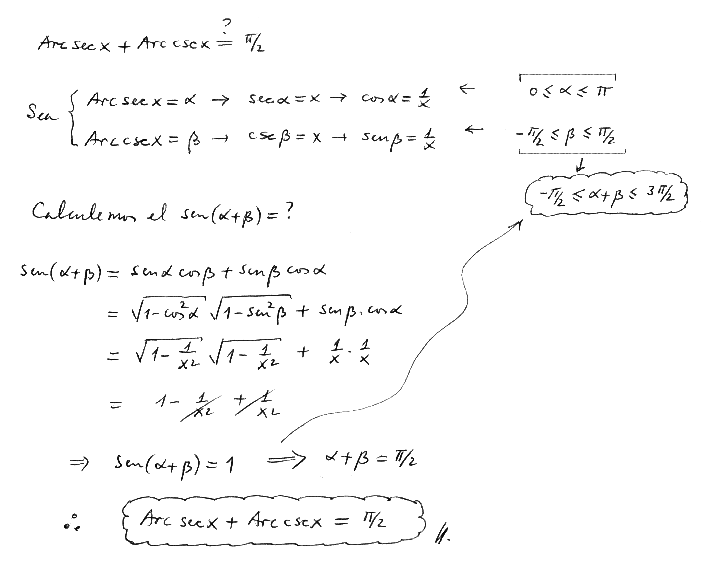 Arc sec x + Arc csc x ≟ π/2
Sean { Arc sec x = α → sec α = x → cos α = 1/x ← 0 ≤ α ≤ π
Arc csc x = β → csc β = x → sen β = 1/x ← -π/2 ≤ β ≤ π/2
↓
-π/2 ≤ α+β ≤ 3π/2
Calculemos el sen(α+β) = ?
sen(α+β) = sen α cos β + sen β cos α
= √(1-cos²α) √(1-sen²β) + sen β . cos α
= √(1 - 1/x²) √(1 - 1/x²) + 1/x · 1/x
= 1 - 1/x² + 1/x²
⇒ sen(α+β) = 1 ⇒ α+β = π/2
∴ Arc sec x + Arc csc x = π/2 //.